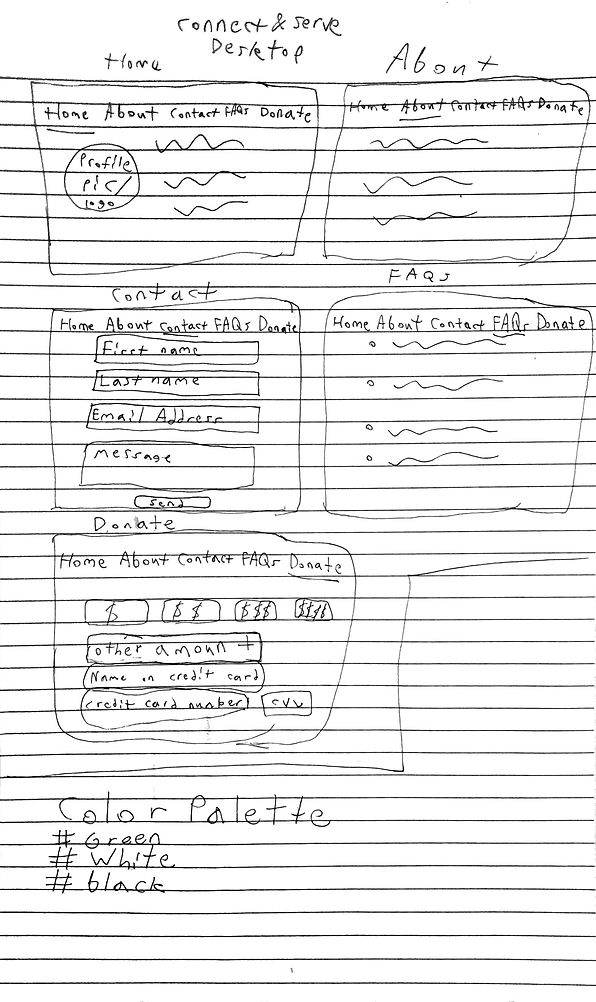 connect & serve
Desktop
Home
About
Home About Contact FAQs Donate
Profile
pic/
logo
Home About Contact FAQs Donate
Contact
Home About Contact FAQs Donate
First name
Last name
Email Address
message
send
FAQs
Home About Contact FAQs Donate
Donate
Home About Contact FAQs Donate
$ $$ $$$ $$$$
other amount
Name on credit card
credit card number cvv
Color Palette
# Green
# White
# black